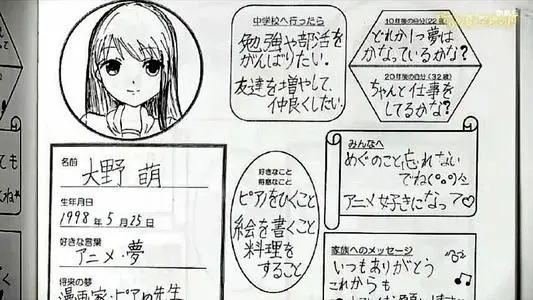 中学校へ行ったら
勉強や部活を
がんばりたい。
友達を増やして、
仲良くしたい。
10年後の自分(22歳)
どれか1つ夢は
かなっているかな?
20年後の自分(32歳)
ちゃんと仕事を
してるかな?
名前
大野 萌
生年月日
1998年5月25日
好きな言葉
アニメ・夢
将来の夢
漫画家・ピアノの先生
好きなこと
得意なこと
ピアノをひくこと
絵を書くこと
料理を
すること
みんなへ
めぐのこと忘れない
でね
アニメ好きになって♡
家族へのメッセージ
いつもありがとう
これからも